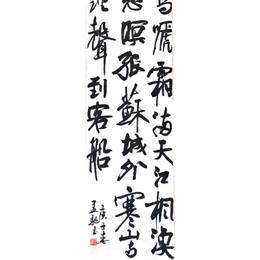 烏啼霜滿天江楓漁
愁眠姑蘇城外寒山寺
鐘聲到客船